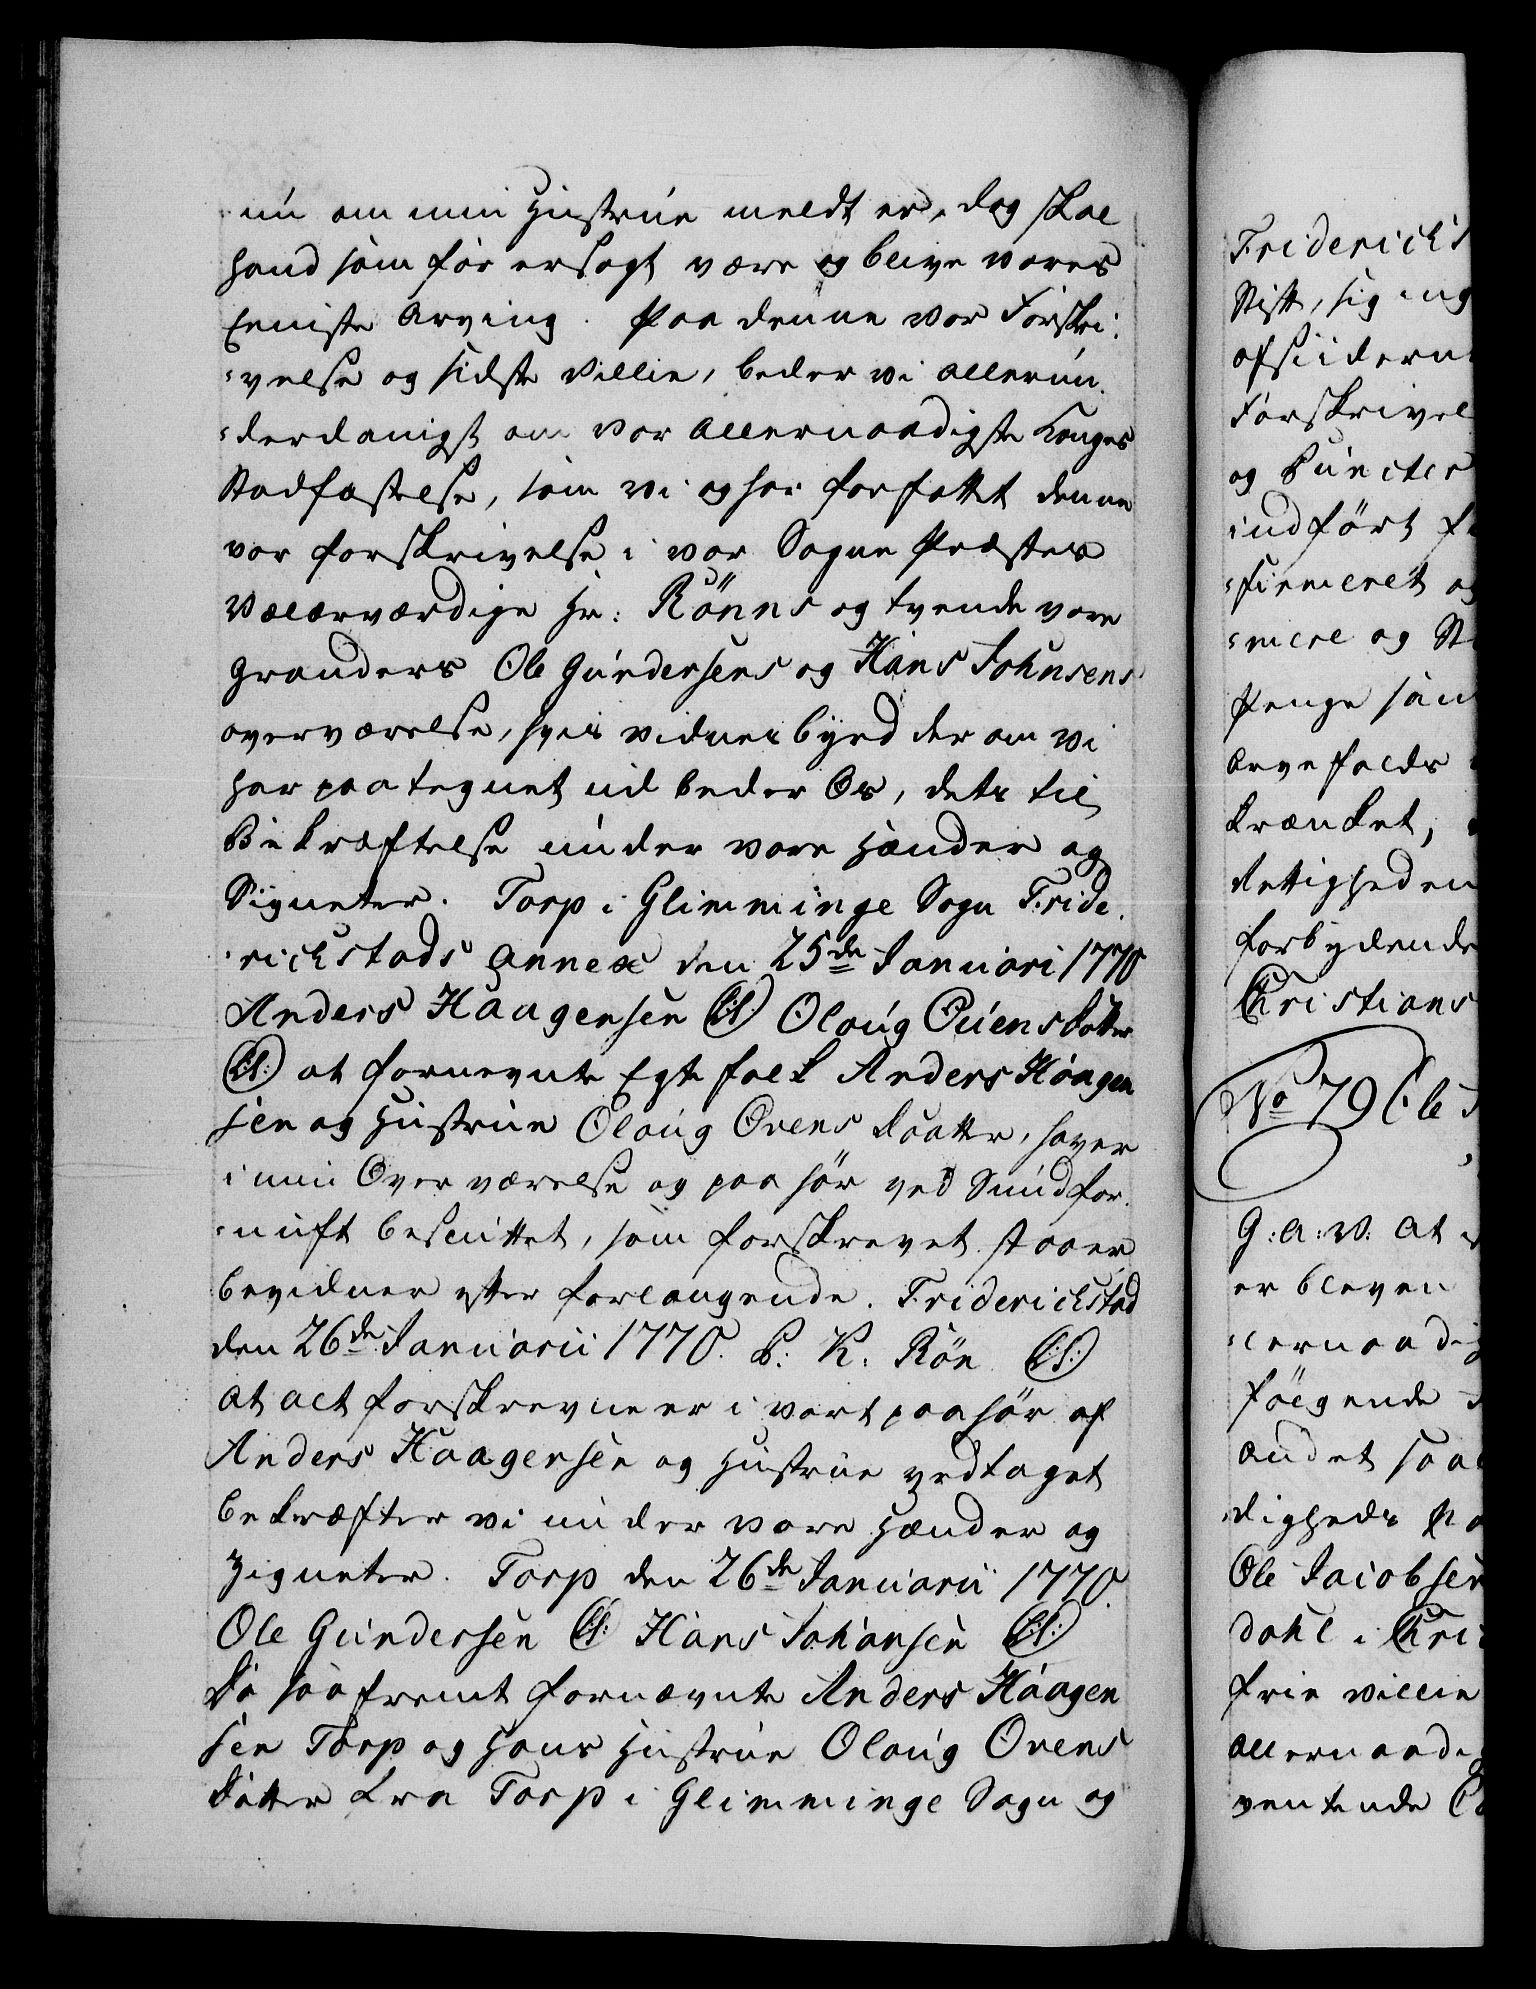 nu om min Hustrue meldt er, dog skal
hand som før ersagt være og blive vores
Eeniste Arving. Paa denne vor Forskri,
-velse og sidste Villie, beder vi allerun,
-derdanigst om vor allernaadigste Konges
Stadfæstelse, som vi og har forfattet denne
vor forskrivelse i vor Sogne Præstes
Vælærværdige Hr: Rönns og tvende vore
Granders Ole Gundersens og Hans Johnsens
overværelse, hvis vidnesbyrd der om vi
har paategnet udbeder Os, dets til
Bekræftelse under vore Hænder og
Signeter. Torp i Glimminge Sogn Fride,
-richstads Annex den 25de Januari 1770
Anders Haagensen (LS) Olaug Ouensdotter
(LS:) at fornevnte Egtefolk Anders Haagen
sen og Hustrue Olaug Ovens daatter, haver
i min Overværelse og paahør ved Sundfor,
-nuft besluttet, som forskrevet staaer
bevidner efter forlangende. Friderichstad
den 26de Januarii 1770. P: K: Rön (LS:)
at alt forskrevne er i vort paahør af
Anders Haagensen og Hustrue vedtaget
bekræfter vi under vore Hænder og
Zigneter. Torp den 26de Januarii 1770.
Ole Gundersen (LS: Hans Johansen (LS:)
Da saafremt fornævnte Anders Haagen
sen Torp og Hans Hustrue Olaug Ovens
datter fra Torp i Glimminge Sogn og
Friderichs
Stift, sig
afsiidern
Forskrivel
og Puncter
indført
-firmeret og
-mere og
Penge
Arvefalds
krænket,
Rettigheden
forbydende
Christians
No 79
G: A: V: At
er bleven
-lernaadig
følgende
andet saa
digheds
Ole Jacobsen
dahl i Chri
frie villie
Allernaadig
ventende